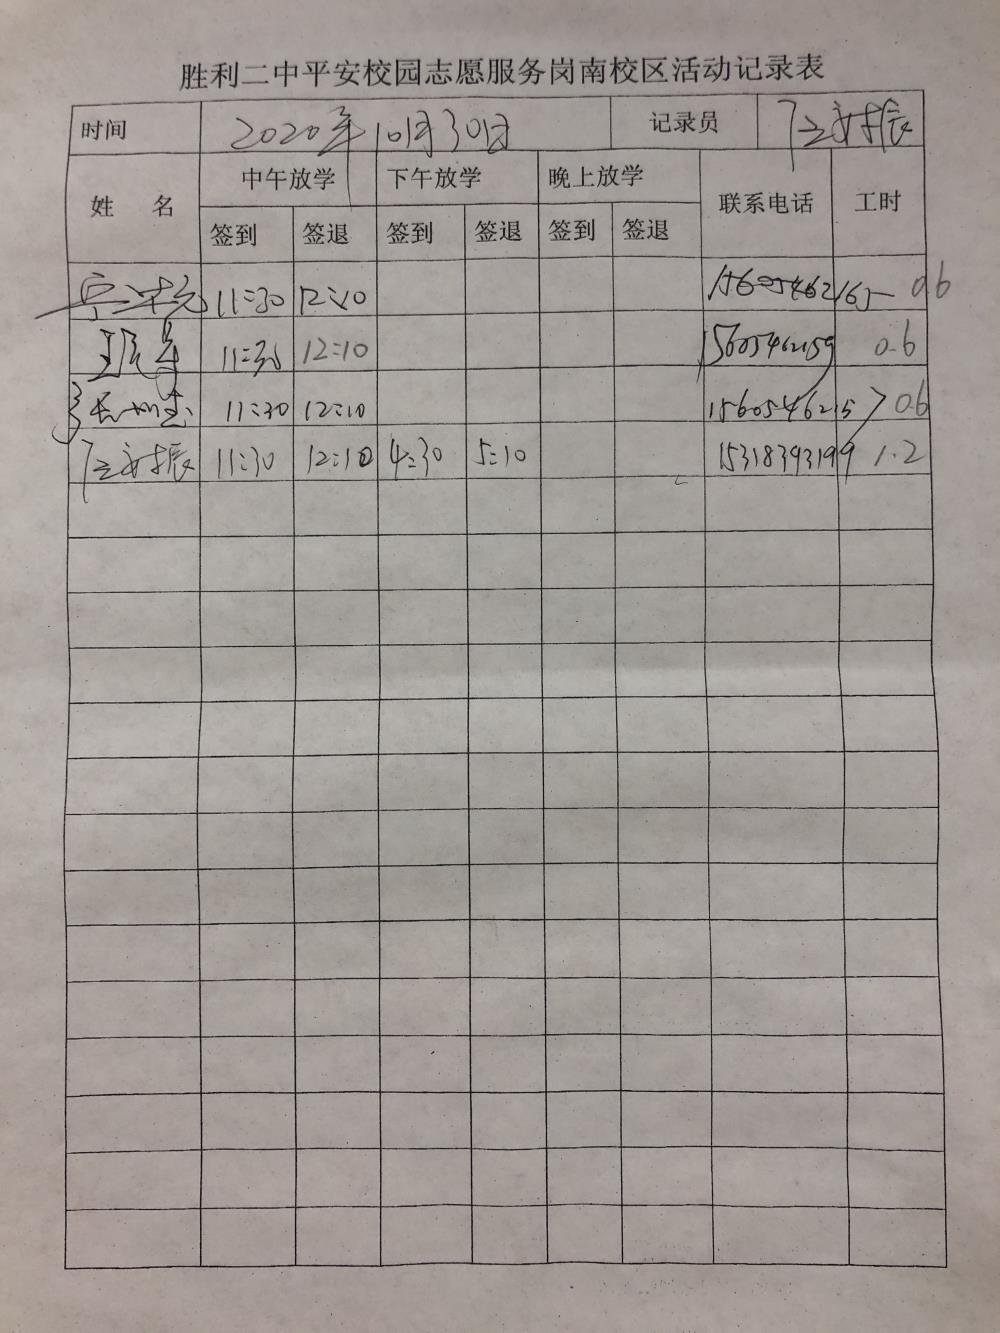 胜利二中平安校园志愿服务岗南校区活动记录表
时间 2020年10月30日 记录员
姓 名 中午放学 下午放学 晚上放学 联系电话 工时
签到 签退 签到 签退 签到 签退
11:30 12:10 15605462165 0.6
11:30 12:10 15605462159 0.6
11:30 12:10 0.6
11:30 12:10 4:30 5:10 15318393199 1.2